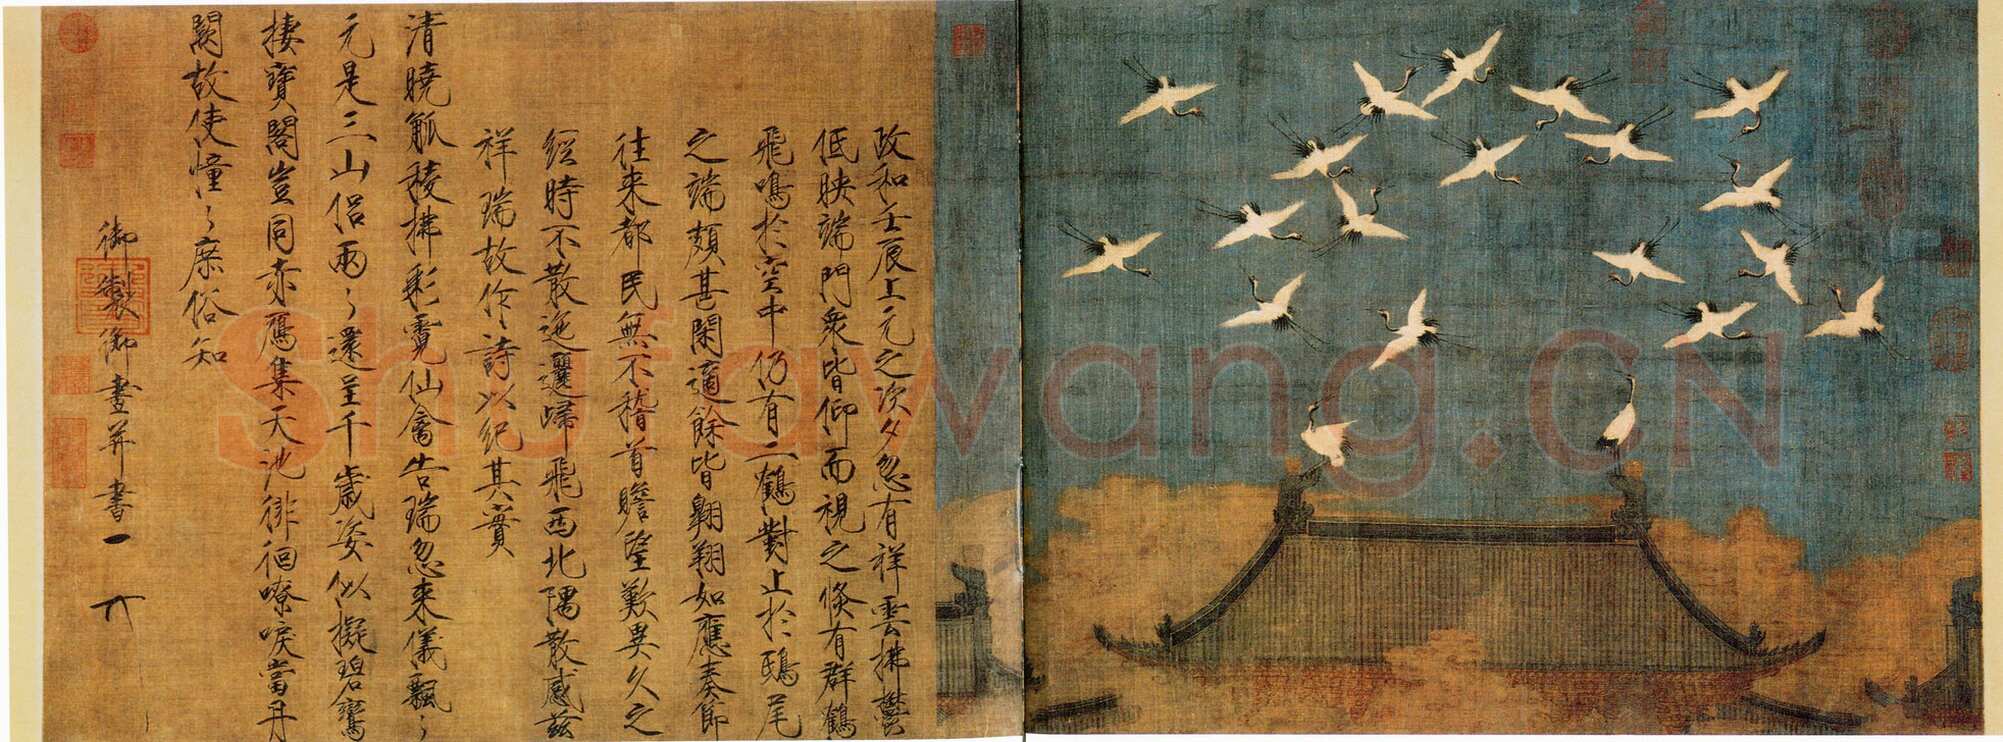 政和壬辰上元之次夕忽有祥雲拂鬱
低映端門衆皆仰而視之倏有群鶴
飛鳴於空中仍有二鶴對止於鴟尾
之端頗甚閑適餘皆翱翔如應奏節
往来都民無不稽首瞻望歎異久之
經時不散迤邐歸飛西北隅散感茲
祥瑞故作詩以紀其實
清曉觚稜拂彩霓仙禽告瑞忽来儀飄〻
元是三山侶兩〻還呈千歲姿似擬碧鸞
棲寶閣豈同赤鴈集天池徘徊嘹唳當丹
闕故使憧〻庶俗知
御製御畫并書
Shufawang.CN